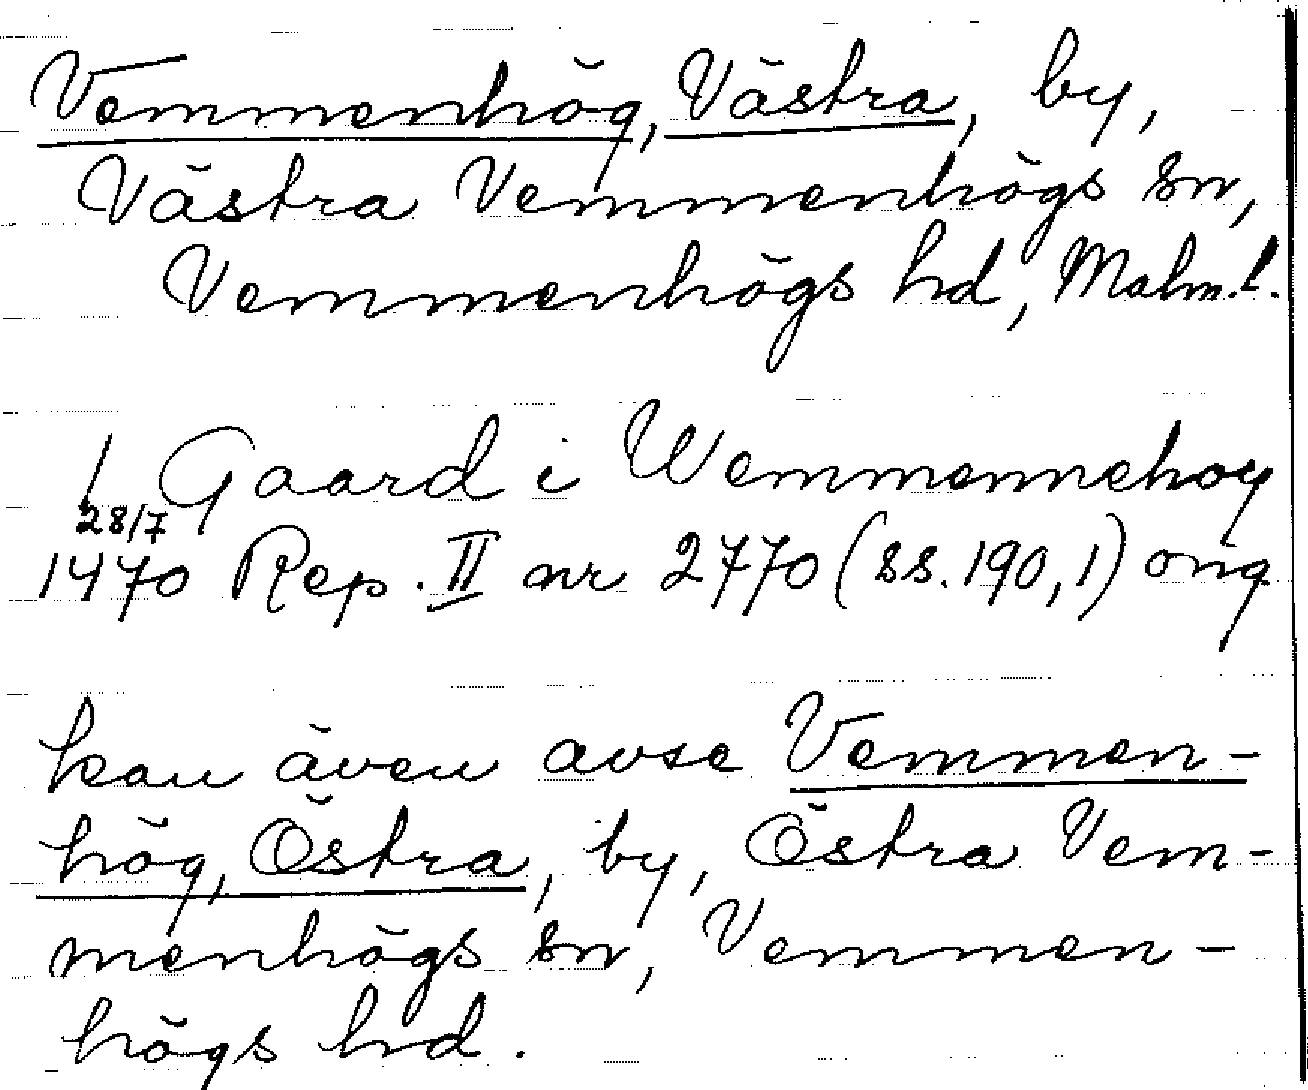 Vemmenhög, Västra, by,
Västra Vemmenhögs sn,
Vemmenhögs hd, Malm.l.
1 Gaard i Wemmennehog
28/7
1470 Rep. II nr 2770 (ss. 190,1) ong
kan även avse Vemmen-
hög, Östra, by, Östra Vem-
menhögs sn, Vemmen-
högs hd.